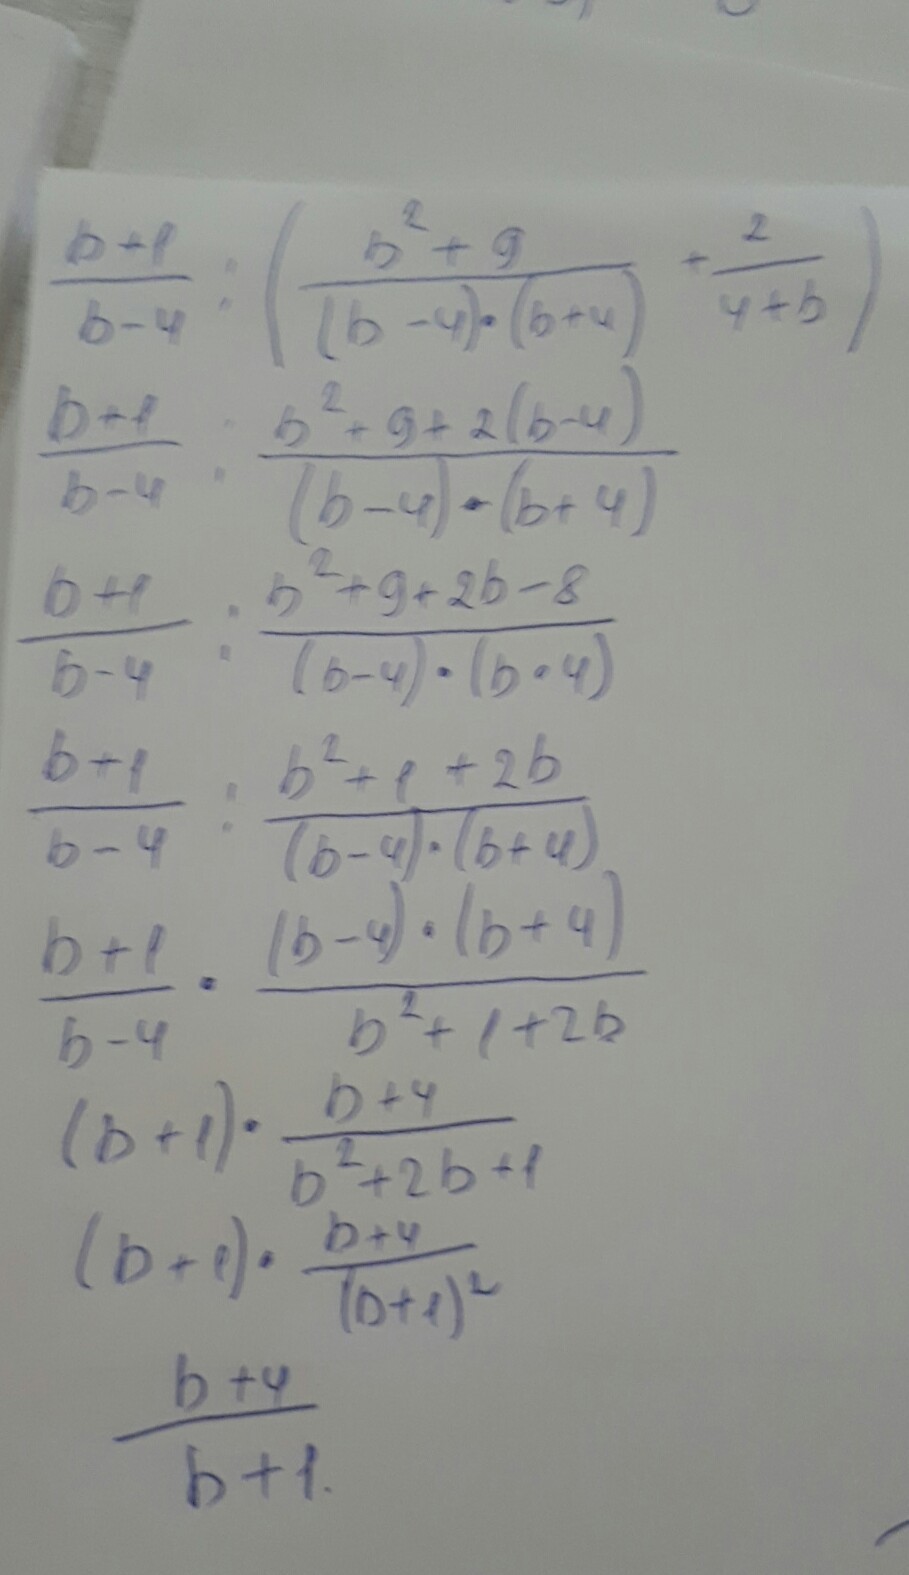 (b+1)/(b-4) : ((b²+9)/((b-4)·(b+4)) + 2/(4+b))
(b+1)/(b-4) : (b²+9+2(b-4))/((b-4)·(b+4))
(b+1)/(b-4) : (b²+9+2b-8)/((b-4)·(b·4))
(b+1)/(b-4) : (b²+1+2b)/((b-4)·(b+4))
(b+1)/(b-4) · ((b-4)·(b+4))/(b²+1+2b)
(b+1)·(b+4)/(b²+2b+1)
(b+1)·(b+4)/(b+1)²
(b+4)/(b+1).